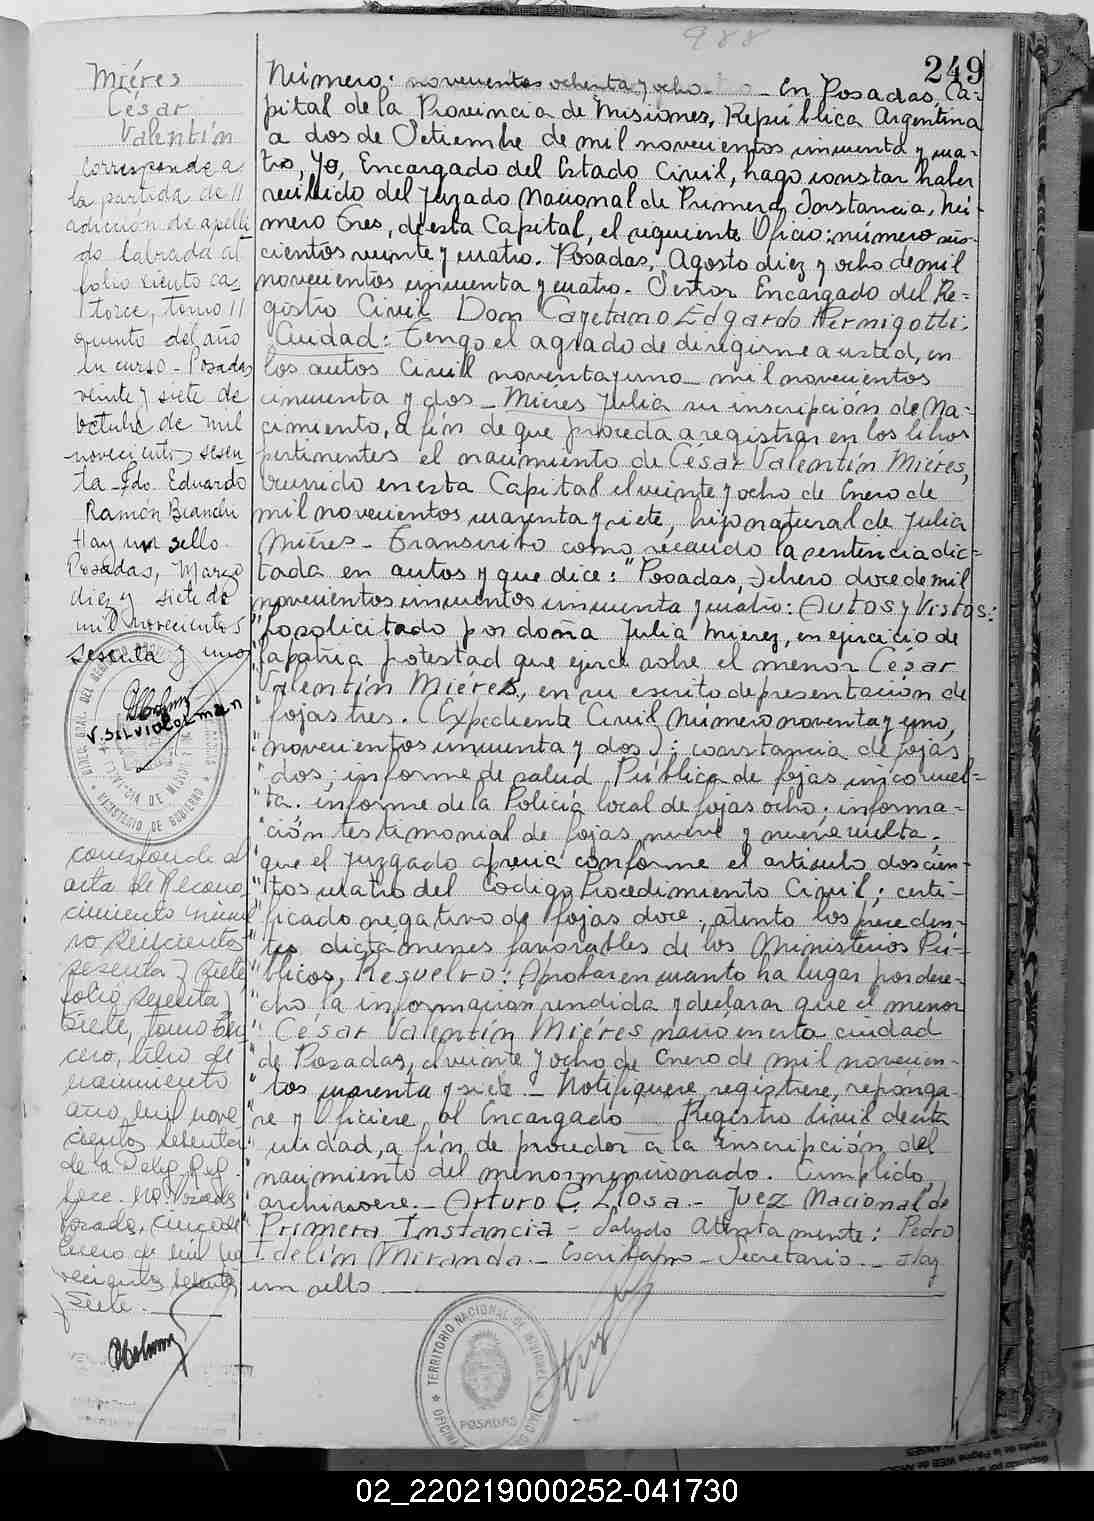 988
249
Miéres
César
Valentín
corresponde a
la partida de
adición de apelli
do labrada al
folio ciento ca-
torce, tomo
quinto del año
en curso - Posadas
veinte y siete de
octubre de mil
novecientos sesen-
ta - Fdo. Eduardo
Ramón Bianchi
Hay un sello.
Posadas, Marzo
diez y siete de
mil novecientos
sesenta y uno
corresponde al
acta de Recono
cimiento núme
ro seiscientos
sesenta y siete,
folio sesenta y
siete, tomo ter
cero, libro de
nacimiento
año mil nove
cientos sesenta
de la Deleg. Reg.
Posadas, cinco de
Enero de mil no
vecientos sesenta
y siete.
Número: novecientos ochenta y ocho - En Posadas, Ca-
pital de la Provincia de Misiones, República Argentina
a dos de Setiembre de mil novecientos cincuenta y cua-
tro, Yo, Encargado del Estado Civil, hago constar haber
recibido del Juzgado Nacional de Primera Instancia, Nú-
mero Tres, de esta Capital, el siguiente Oficio: número seis-
cientos veinte y cuatro. Posadas, Agosto diez y ocho de mil
novecientos cincuenta y cuatro. Señor Encargado del Re-
gistro Civil Don Cayetano Edgardo Pernigotti.
Ciudad: Tengo el agrado de dirigirme a usted, en
los autos Civil noventa y uno mil novecientos
cincuenta y dos - Miéres Julia su inscripción de Na-
cimiento, a fín de que proceda a registrar en los libros
pertinentes el nacimiento de César Valentín Miéres,
ocurrido en esta Capital el veinte y ocho de Enero de
mil novecientos cuarenta y siete, hijo natural de Julia
Miéres - Transcribo como recaudo la sentencia dic-
tada en autos y que dice: "Posadas, Febrero doce de mil
novecientos cincuentos cincuenta y cuatro: Autos y Vistos:
"Lo solicitado por doña Julia Miérez, en ejercicio de
"la patria potestad que ejerce sobre el menor César
Valentín Miéres, en su escrito de presentación de
"fojas tres. (Expediente Civil número noventa y uno,
"novecientos cincuenta y dos); constancia de fojas
"dos; informe de salud Pública de fojas cinco vuel-
"ta. informe de la Policía local de fojas ocho; informa-
"ción testimonial de fojas nueve y nueve vuelta.
"que el Juzgado aprecia conforme el artículo doscien-
"tos cuatro del Código Procedimiento Civil; certi-
"ficado negativo de fojas doce; atento los preceden-
"tes dictámenes favorables de los Ministerios Pú-
"blicos, Resuelvo: Aprobar en cuanto ha lugar por dere-
"cho la información rendida y declarar que el menor
"César Valentín Miéres nació en esta ciudad
"de Posadas, el veinte y ocho de Enero de mil novecien-
"tos cuarenta y siete - Notifíquese, regístrese, repónga-
"se y Ofíciese al Encargado Registro Civil de esta
"ciudad, a fín de proceder a la inscripción del
"nacimiento del menor mencionado. Cumplido,
"archívese. - Arturo C. Llosa. - Juez Nacional de
"Primera Instancia - Saludo Atentamente: Pedro
Fidelín Miranda. - Escribano - Secretario. - Hay
un sello
TERRITORIO NACIONAL DE MISIONES
POSADAS
02_220219000252-041730